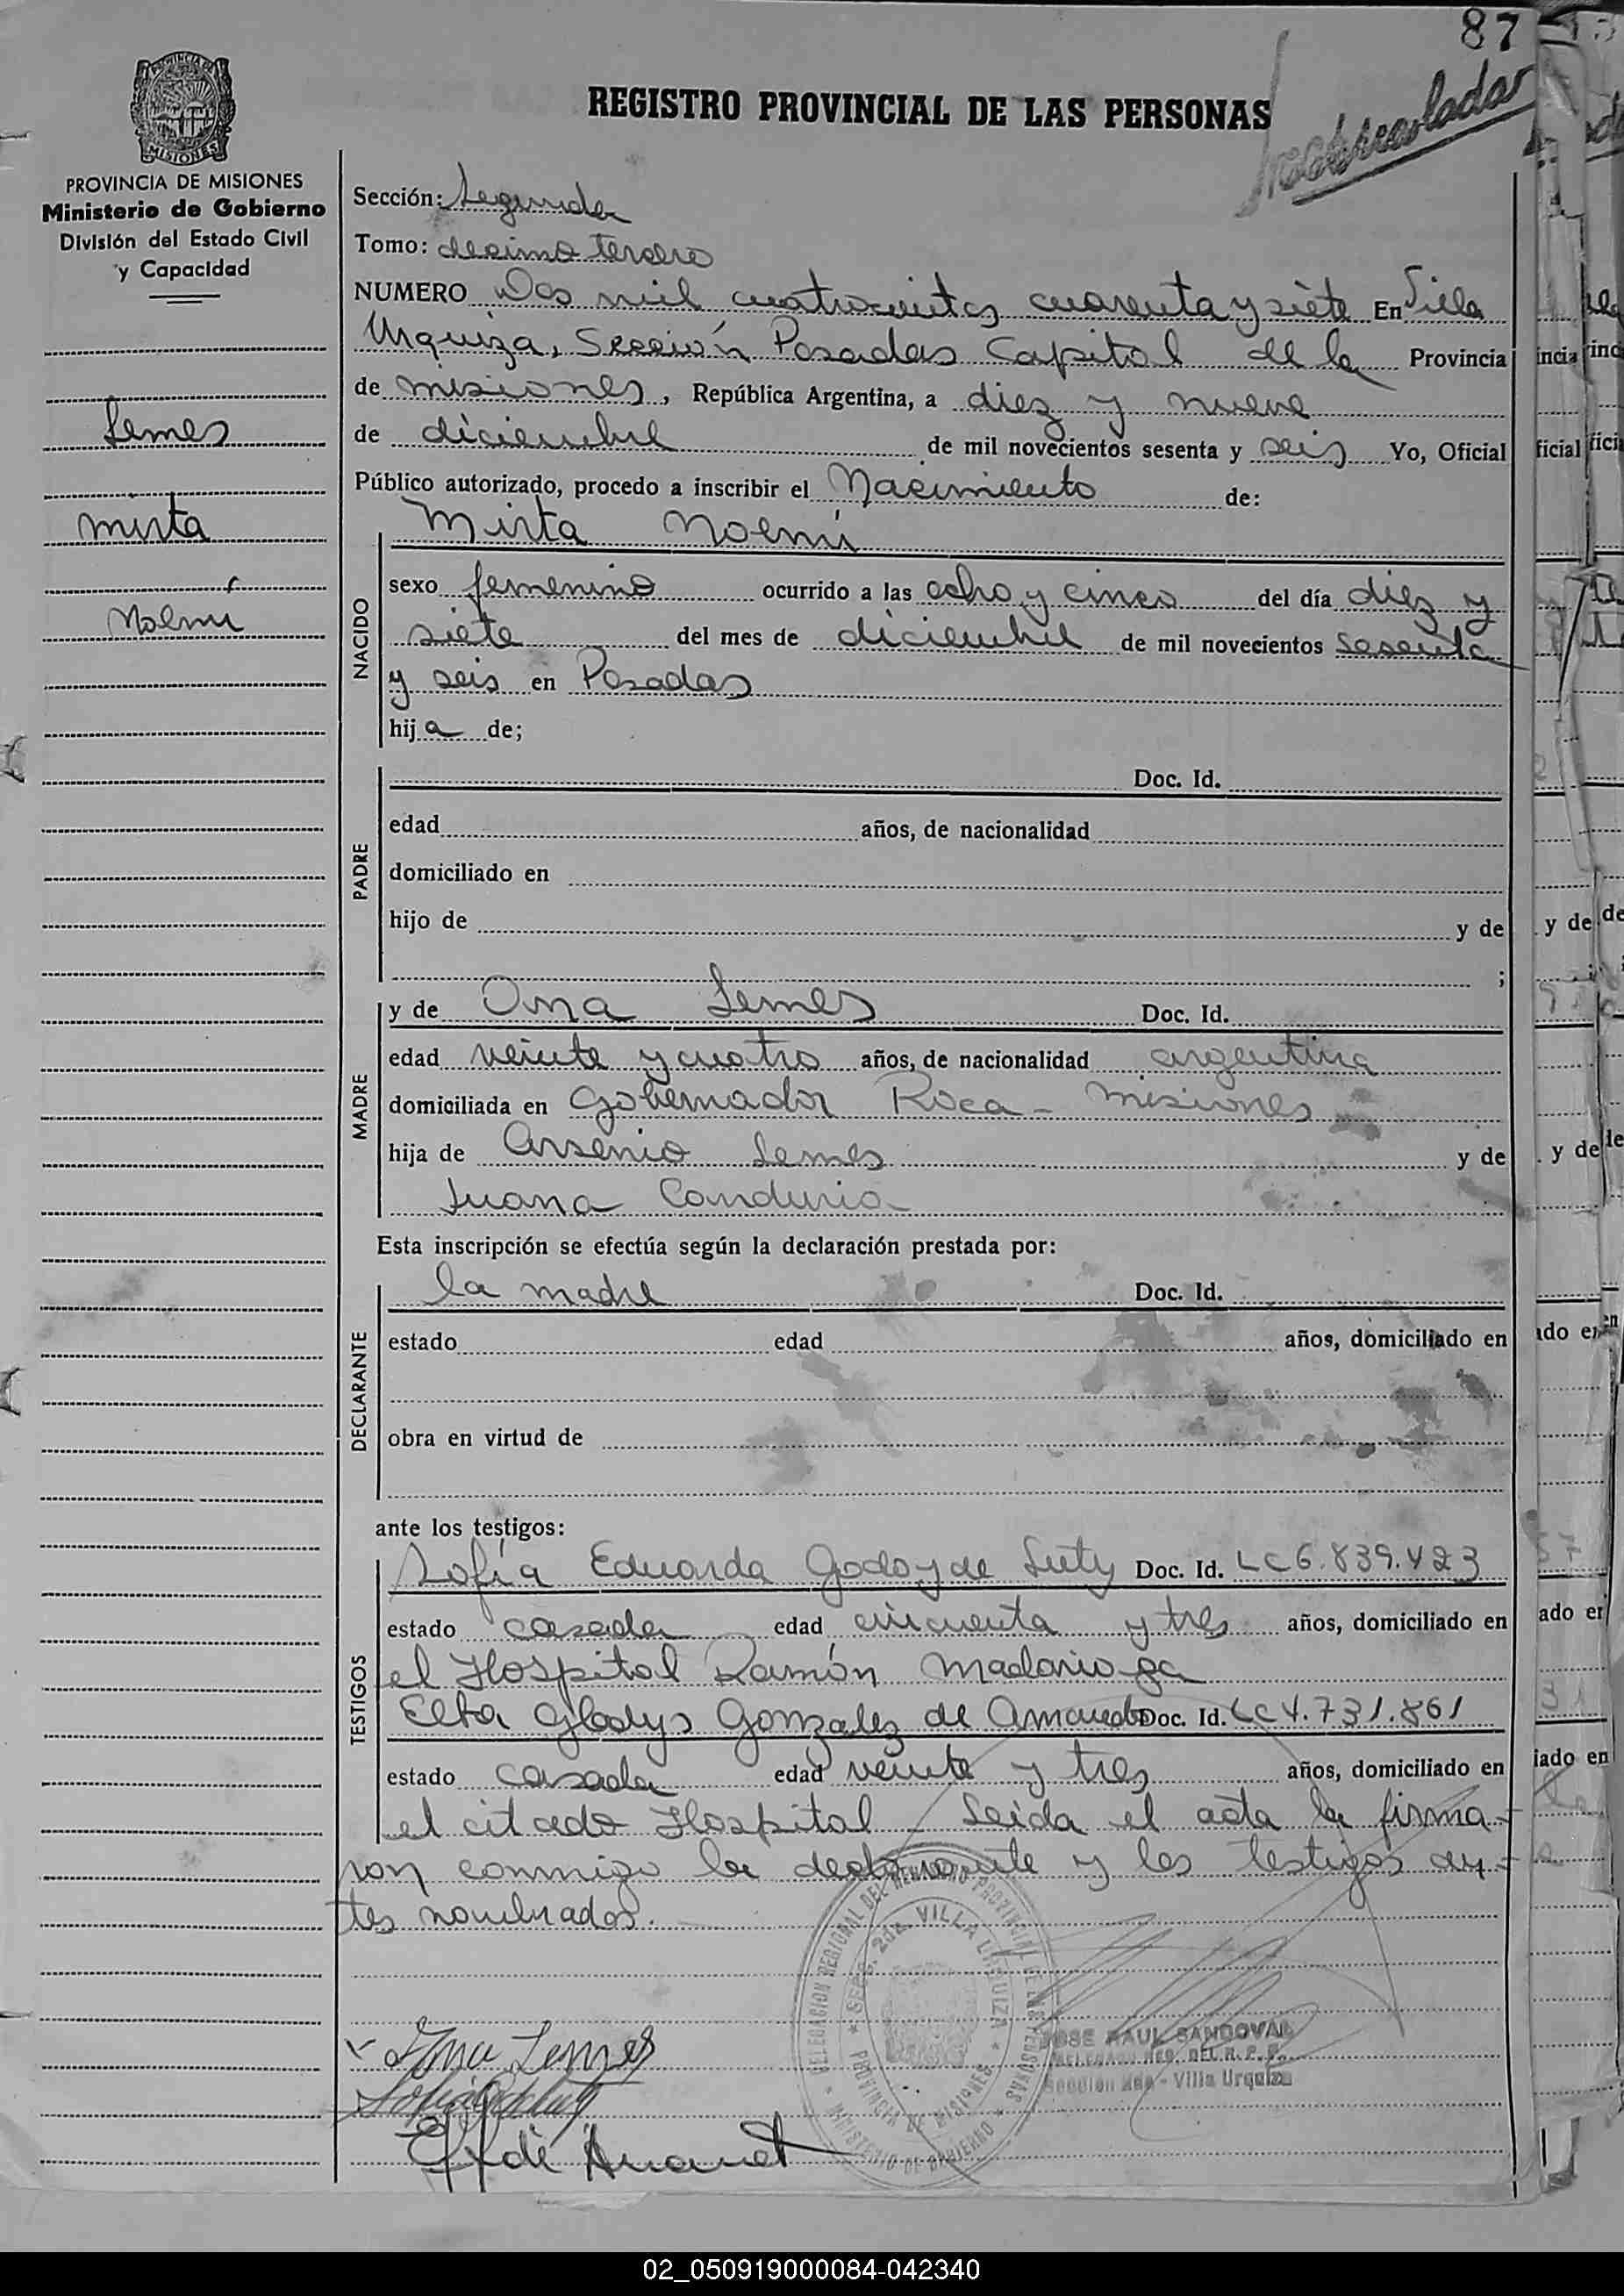 87
REGISTRO PROVINCIAL DE LAS PERSONAS
PROVINCIA DE MISIONES
Ministerio de Gobierno
División del Estado Civil
y Capacidad
MISIONES
Lemes
Mirta
Noemí
Sección: Segunda
Tomo: decimo tercero
NUMERO Dos mil cuatrocientos cuarenta y siete En Villa
Urquiza, Sección Posadas Capital de la Provincia
de misiones, República Argentina, a diez y nueve
de diciembre de mil novecientos sesenta y seis Yo, Oficial
Público autorizado, procedo a inscribir el Nacimiento de:
Mirta Noemí
NACIDO
sexo femenino ocurrido a las ocho y cinco del día diez y
siete del mes de diciembre de mil novecientos sesenta
y seis en Posadas
hija de;
PADRE
Doc. Id.
edad años, de nacionalidad
domiciliado en
hijo de y de
;
MADRE
y de Lemes Doc. Id.
edad veinte y cuatro años, de nacionalidad argentina
domiciliada en Gobernador Roca - Misiones
hija de Arsenio Lemes y de
Juana
Esta inscripción se efectúa según la declaración prestada por:
DECLARANTE
la madre Doc. Id.
estado edad años, domiciliado en
obra en virtud de
ante los testigos:
TESTIGOS
Sofía Eduarda Godoy de Doc. Id. LC 6.839.423
estado casada edad cincuenta y tres años, domiciliado en
el Hospital Ramón Madariaga
Elba Gladys Gonzalez de Doc. Id. LC 4.731.861
estado casada edad veinte y tres años, domiciliado en
el citado Hospital Leida el acta la firma-
ron conmigo la declarante y los testigos an-
tes nombrados.
DELEGACION REGIONAL DEL REGISTRO PROVINCIAL DE LAS PERSONAS
SECC. 2da. VILLA URQUIZA
PROVINCIA DE MISIONES
MINISTERIO DE GOBIERNO
JOSE RAUL SANDOVAL
DELEGADO REG. DEL R. P. P.
Sección 2da - Villa Urquiza
Lemes
02_050919000084-042340